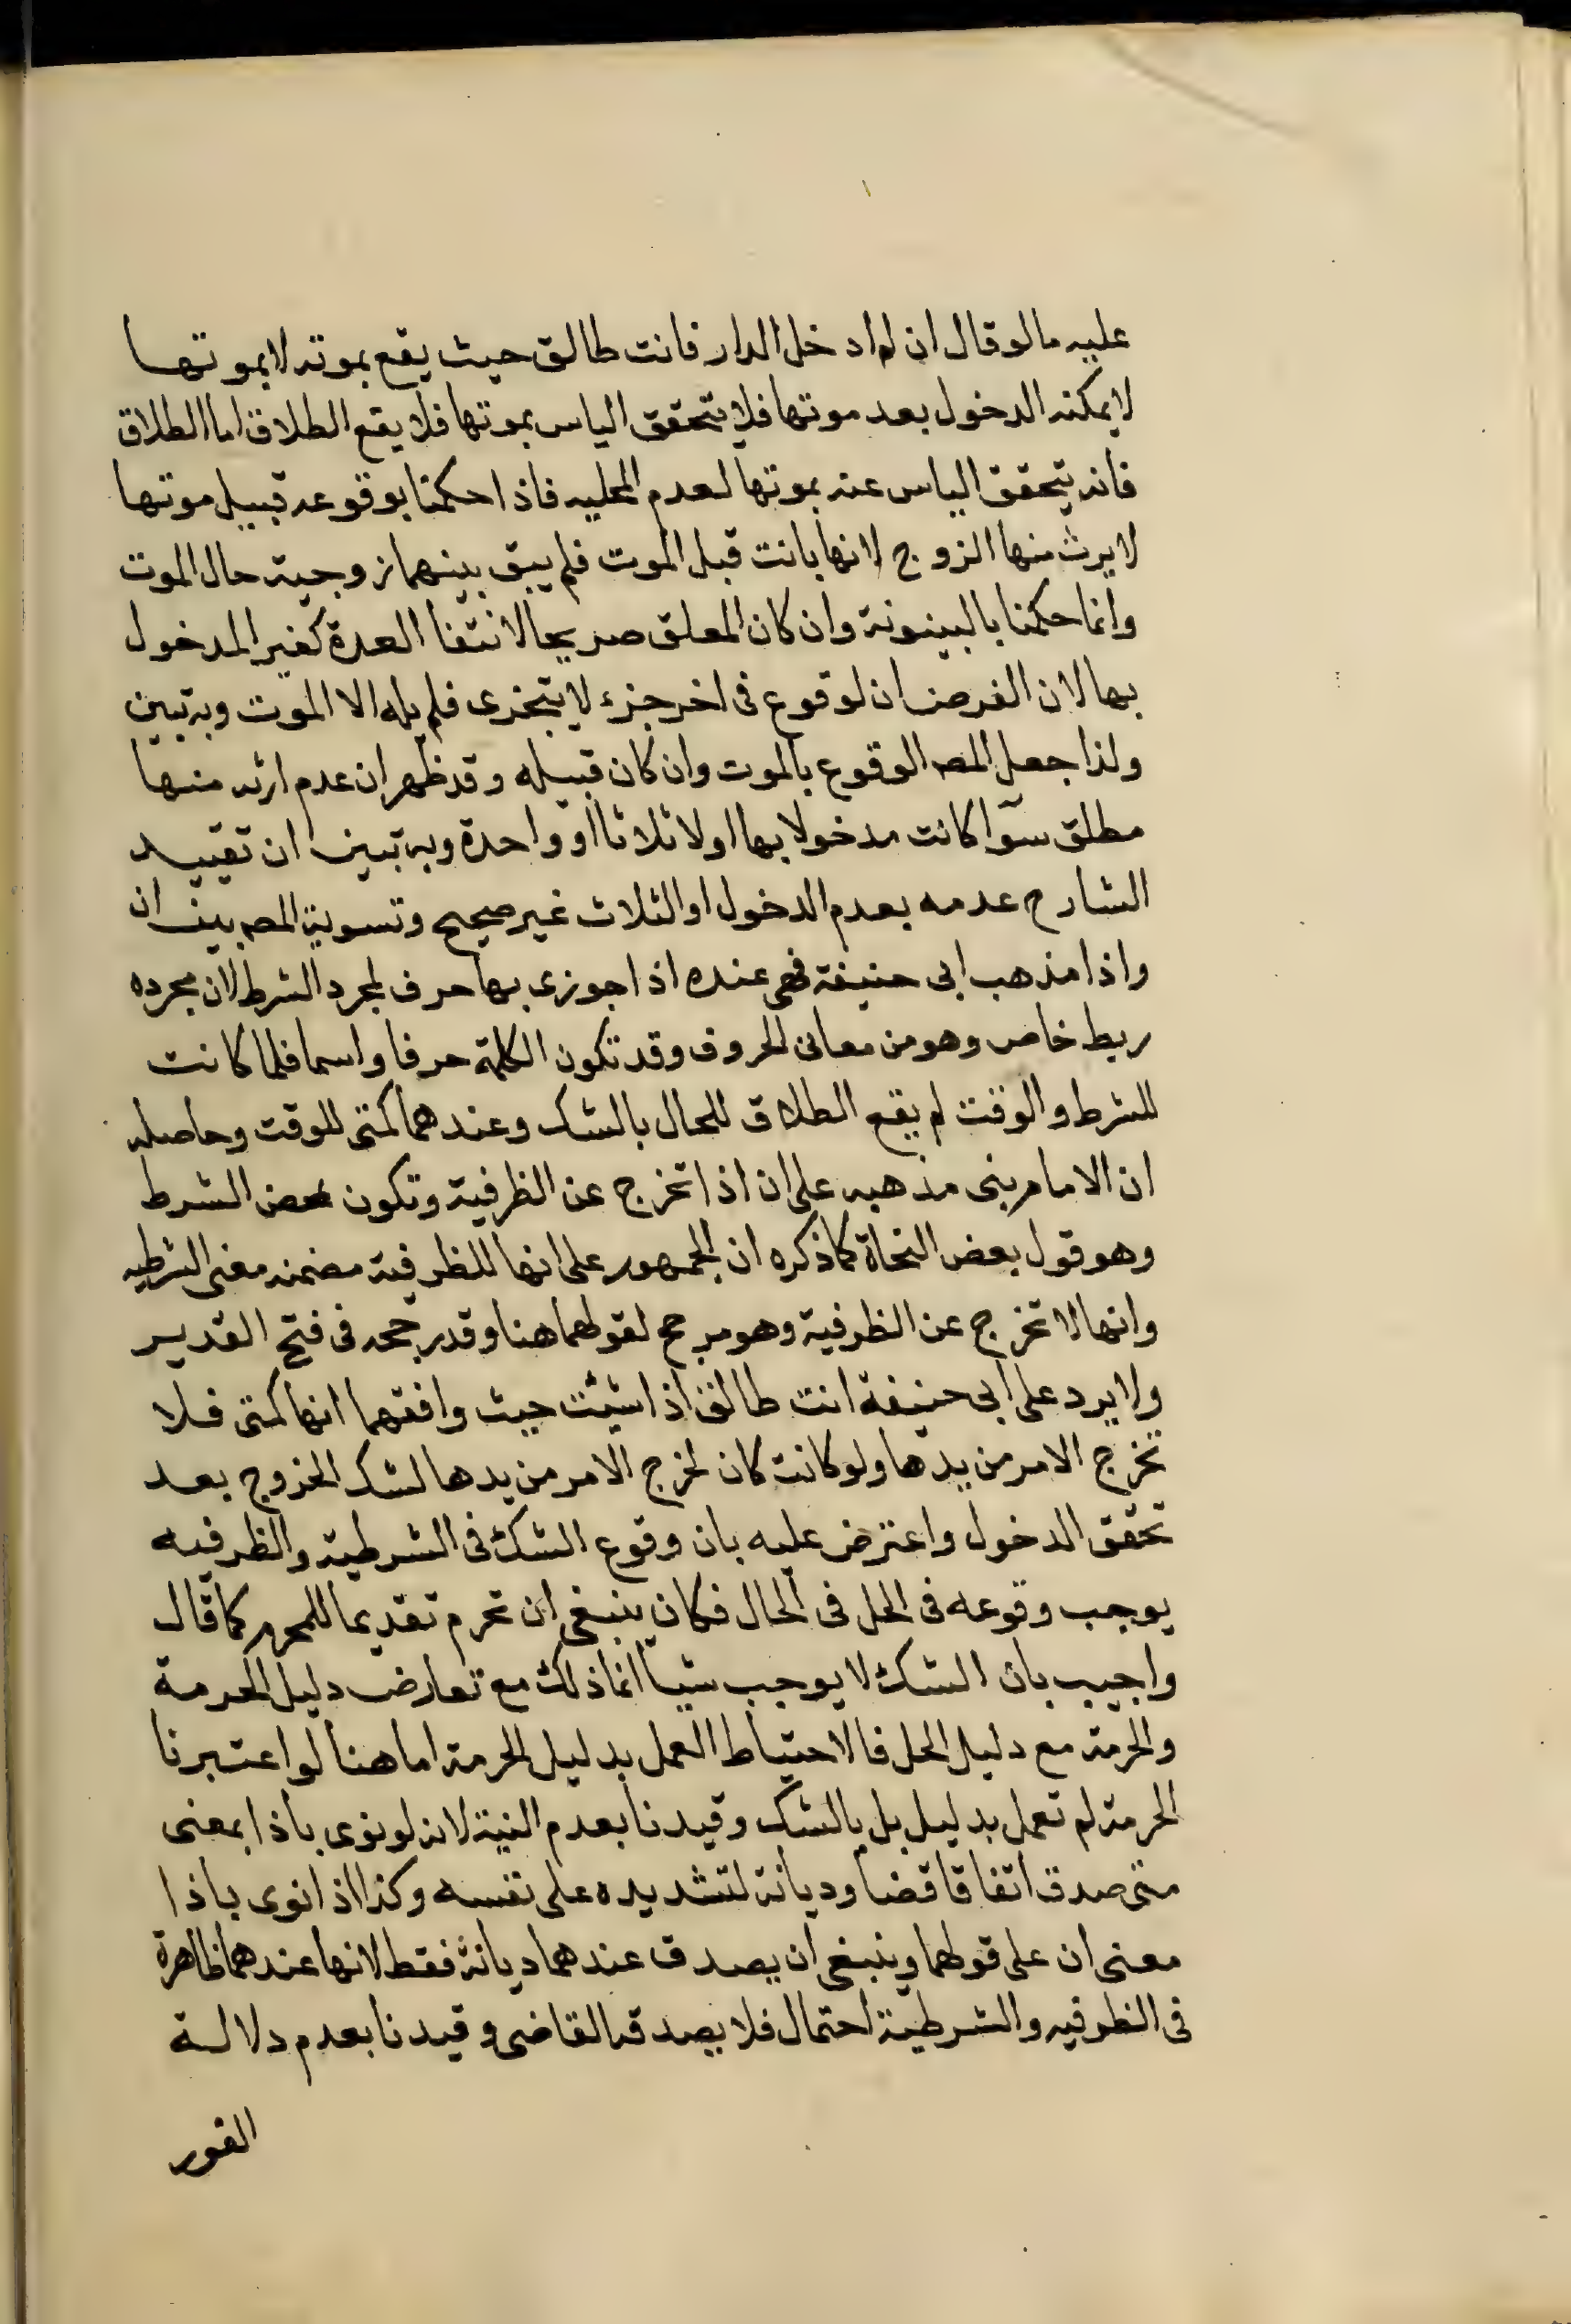 عليه مالوقال ان لم ادخل الدار فانت طالق حيث يقع بموته لا بموتها
لا يمكنه الدخول بعد موتها فلا يتحقق الياس بموتها فلا يقع الطلاق اما الطلاق
فانه يتحقق الياس عنه بموتها لعدم المحليه فاذا حكمنا بوقوعه قبيل موتها
لا يرث منها الزوج لانها بانت قبل الموت فلم يبق بينهما زوجية حال الموت
وانما حكمنا بالبينونة وان كان المعلق صريحا لانتفا العدة كغير المدخول
بها لان الفرض ان لوقوع فى اخر جزء لا يتجزى فلم يله الا الموت وبه تبين
ولذا جعل المصـ الوقوع بالموت وان كان قبيله وقد ظهر ان عدم ارثه منها
مطلق سوآ كانت مدخولا بها اولا ثلاثا او واحدة وبه تبين ان تقييد
الشارح عدمه بعدم الدخول او الثلاث غير صحيح وتسوية المصـ بين ان
واذا مذهب ابى حنيفة فهى عنده اذا جوزى بها حرف لمجرد الشرط لان مجرده
ربط خاص وهو من معانى الحروف وقد تكون الكلمة حرفا واسما فلما كانت
للشرط والوقت لم يقع الطلاق للحال بالشك وعندهما كمتى للوقت وحاصله
ان الامام بنى مذهبه على ان اذا تخرج عن الظرفية وتكون لمحض الشرط
وهو قول بعض النحاة كما ذكره ان الجمهور على انها للظرفية مضمنه معنى الشرطيه
وانها لا تخرج عن الظرفية وهو مرجح لقولهما هنا وقد رجحه فى فتح القدير
ولا يرد على ابى حنيفة انت طالق اذا شئت حيث وافقهما انها كمتى فلا
تخرج الامر من يدها ولو كانت كان لخرج الامر من يدها لشك الخروج بعد
تحقق الدخول واعترض عليه بان وقوع الشك فى الشرطية والظرفيه
يوجب وقوعه فى الحل فى الحال فكان ينبغى ان تحرم تقديما للمحرم كما قال
واجيب بان الشك لا يوجب شيا انما ذلك مع تعارض دليل الحرمة
والحرمة مع دليل الحل فالاحتياط العمل بدليل الحرمة اما هنا لو اعتبرنا
الحرمة لم تعمل بدليل بل بالشك وقيدنا بعدم النية لانه لو نوى باذا بمعنى
متى صدق اتفاقا قضا وديانة لتشديده على نفسه وكذا اذا نوى باذا
معنى ان على قولهما وينبغى ان يصدق عندهما ديانة فقط لانها عندهما ظاهرة
فى الظرفيه والشرطية احتمال فلا يصدقه القاضى وقيدنا بعدم دلالة
الفور